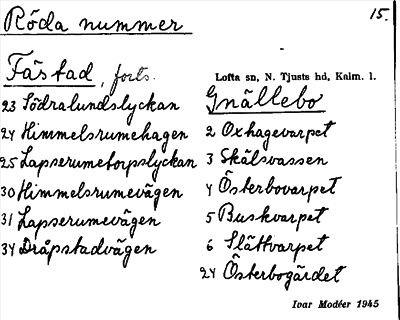 Röda nummer
15.
Färstad, forts.
23 Södralundslyckan
24 Himmelsrumehagen
25 Lapserumetorpslyckan
30 Himmelsrumevägen
31 Lapserumevägen
34 Dråpstadvägen
Lofta sn, N. Tjusts hd, Kalm. l.
Gnällebo
2 Oxhagevarpet
3 Skälsvassen
4 Österbovarpet
5 Buskvarpet
6 Slättvarpet
24 Österbogärdet
Ivar Modéer 1945